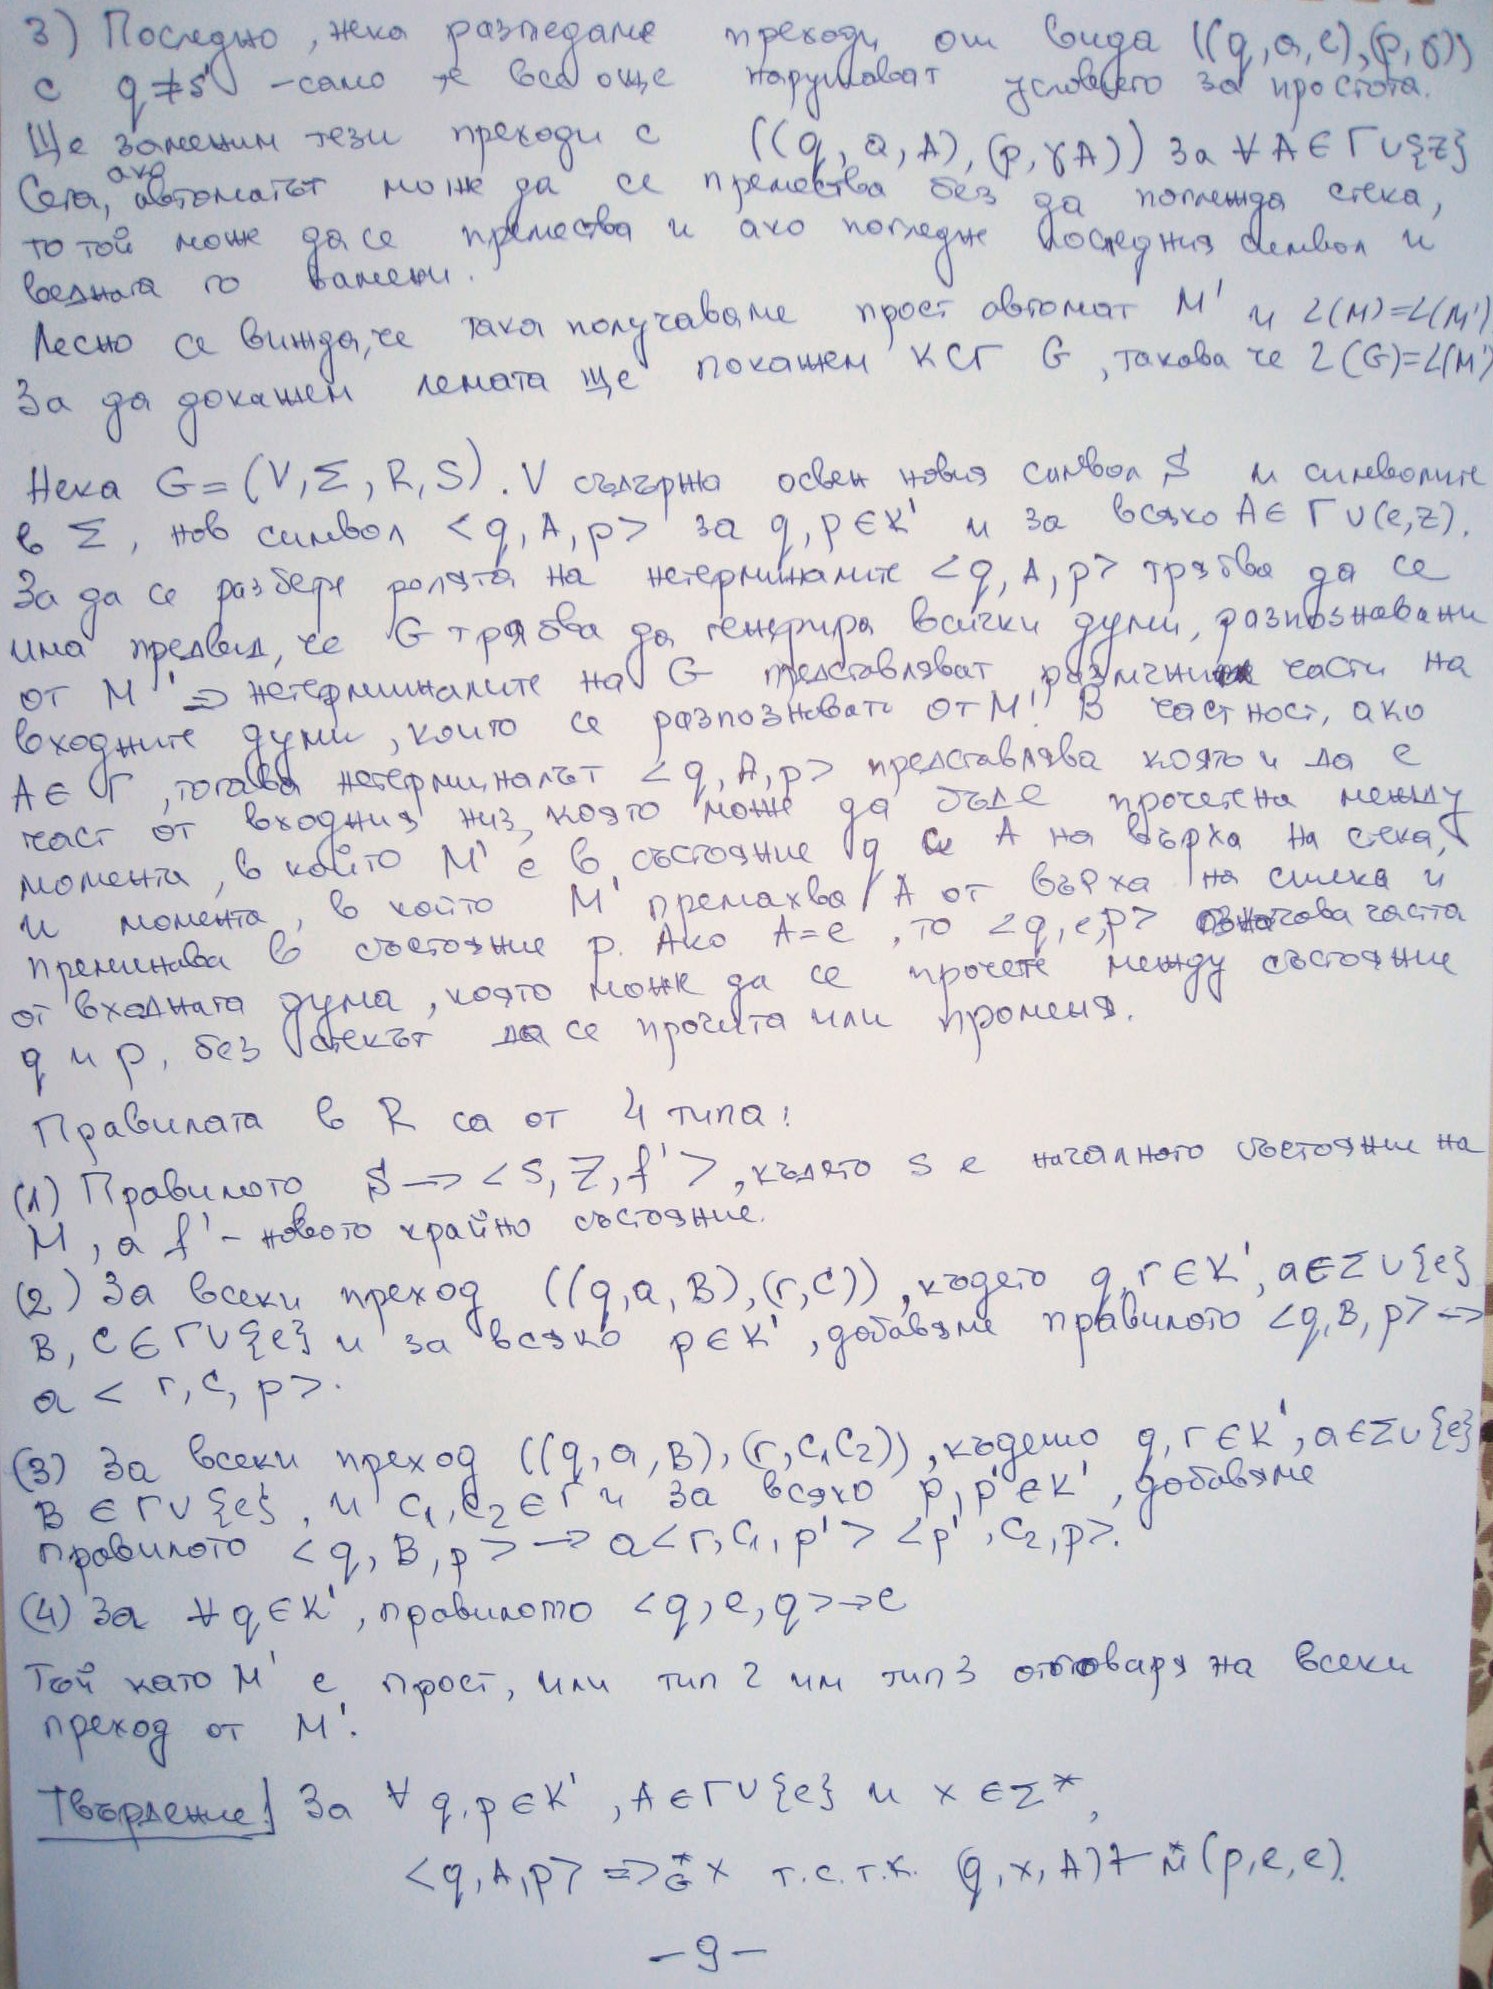 3) Последно, нека разгледаме преходи от вида ((q,a,e),(p,γ))
с q≠s' -само те все още нарушават условието за простота.
Ще заменим тези преходи с ((q,a,A),(p,γA)) за ∀A∈Γ∪{z}
Сега, ако автоматът може да се премества без да поглежда стека,
то той може да се премества и ако погледне последния символ и
веднага го замени.
Лесно се вижда, че така получаваме прост автомат M' и L(M)=L(M')
За да докажем лемата ще покажем КСГ G, такова че L(G)=L(M')
Нека G=(V,Σ,R,S). V съдържа освен новия символ S и символите
в Σ, нов символ <q,A,p> за q,p∈K' и за всяко A∈Γ∪(e,z).
За да се разбере ролята на нетерминалите <q,A,p> трябва да се
има предвид, че G трябва да генерира всички думи, разпознавани
от M' => нетерминалите на G представляват различни части на
входните думи, които се разпознават от M'. В частност, ако
A∈Γ, тогава нетерминалът <q,A,p> представлява която и да е
част от входния низ, която може да бъде прочетена между
момента, в който M' е в състояние q с A на върха на стека,
и момента, в който M' премахва A от върха на стека и
преминава в състояние p. Ако A=e, то <q,e,p> означава частта
от входната дума, която може да се прочете между състояние
q и p, без стекът да се прочита или променя.
Правилата в R са от 4 типа:
(1) Правилото S→<s,Z,f'>, където s е началното състояние на
M, а f' - новото крайно състояние.
(2) За всеки преход ((q,a,B),(r,C)), където q,r∈K', a∈Σ∪{e}
B,C∈Γ∪{e} и за всяко p∈K', добавяме правилото <q,B,p>→
a<r,C,p>.
(3) За всеки преход ((q,a,B),(r,C₁C₂)), където q,r∈K', a∈Σ∪{e}
B∈Γ∪{e}, и C₁,C₂∈Γ и за всяко p,p'∈K', добавяме
правилото <q,B,p>→a<r,C₁,p'><p',C₂,p>.
(4) За ∀q∈K', правилото <q,e,q>→e
Тъй като M' е прост, или тип 2 или тип 3 отговаря на всеки
преход от M'.
Твърдение! За ∀ q,p∈K', A∈Γ∪{e} и x∈Σ*,
<q,A,p> =>*G x т.с.т.к. (q,x,A)⊢*M(p,e,e).
-9-